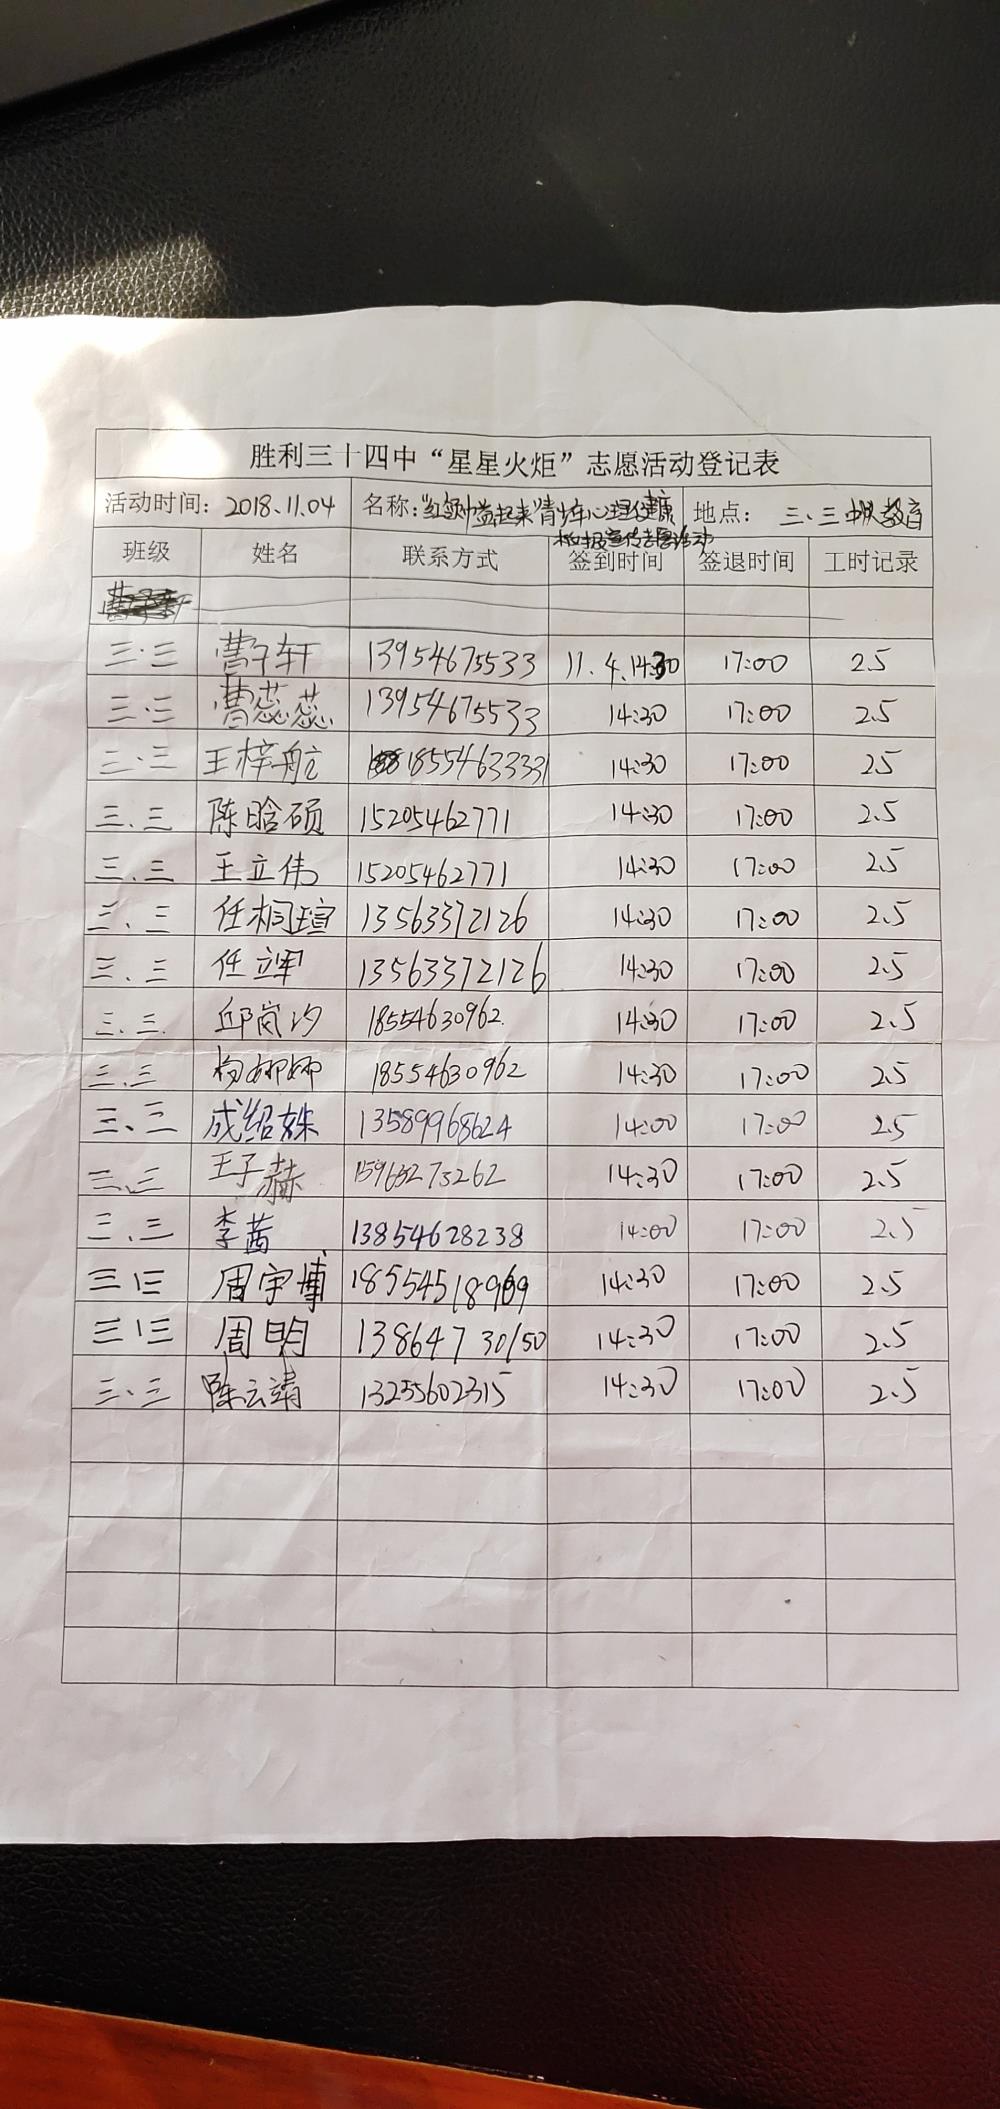 胜利三十四中“星星火炬”志愿活动登记表
活动时间: 2018.11.04 名称:“红领巾益起来”青少年心理健康 地点: 三、三中队教育
板报宣传志愿活动
班级 姓名 联系方式 签到时间 签退时间 工时记录
三.三 曹子轩 13954675533 11.4.14:30 17:00 2.5
三.三 曹蕊蕊 13954675533 14:30 17:00 2.5
三.三 王梓航 18554633331 14:30 17:00 2.5
三.三 陈晗硕 15205462771 14:30 17:00 2.5
三.三 王立伟 15205462771 14:30 17:00 2.5
三.三 任桐瑄 13563372126 14:30 17:00 2.5
三.三 任立军 13563372126 14:30 17:00 2.5
三.三 邱岚汐 18554630962. 14:30 17:00 2.5
三.三 杨娜娜 18554630962 14:30 17:00 2.5
三、三 成绍姝 13589968624 14:00 17:00 2.5
三.三 王子赫 14:30 17:00 2.5
三.三 李茜 13854628238 14:00 17:00 2.5
三|三 周宇博 14:30 17:00 2.5
三|三 周明 13864730150 14:30 17:00 2.5
三.三 陈云靖 13255602315 14:30 17:00 2.5